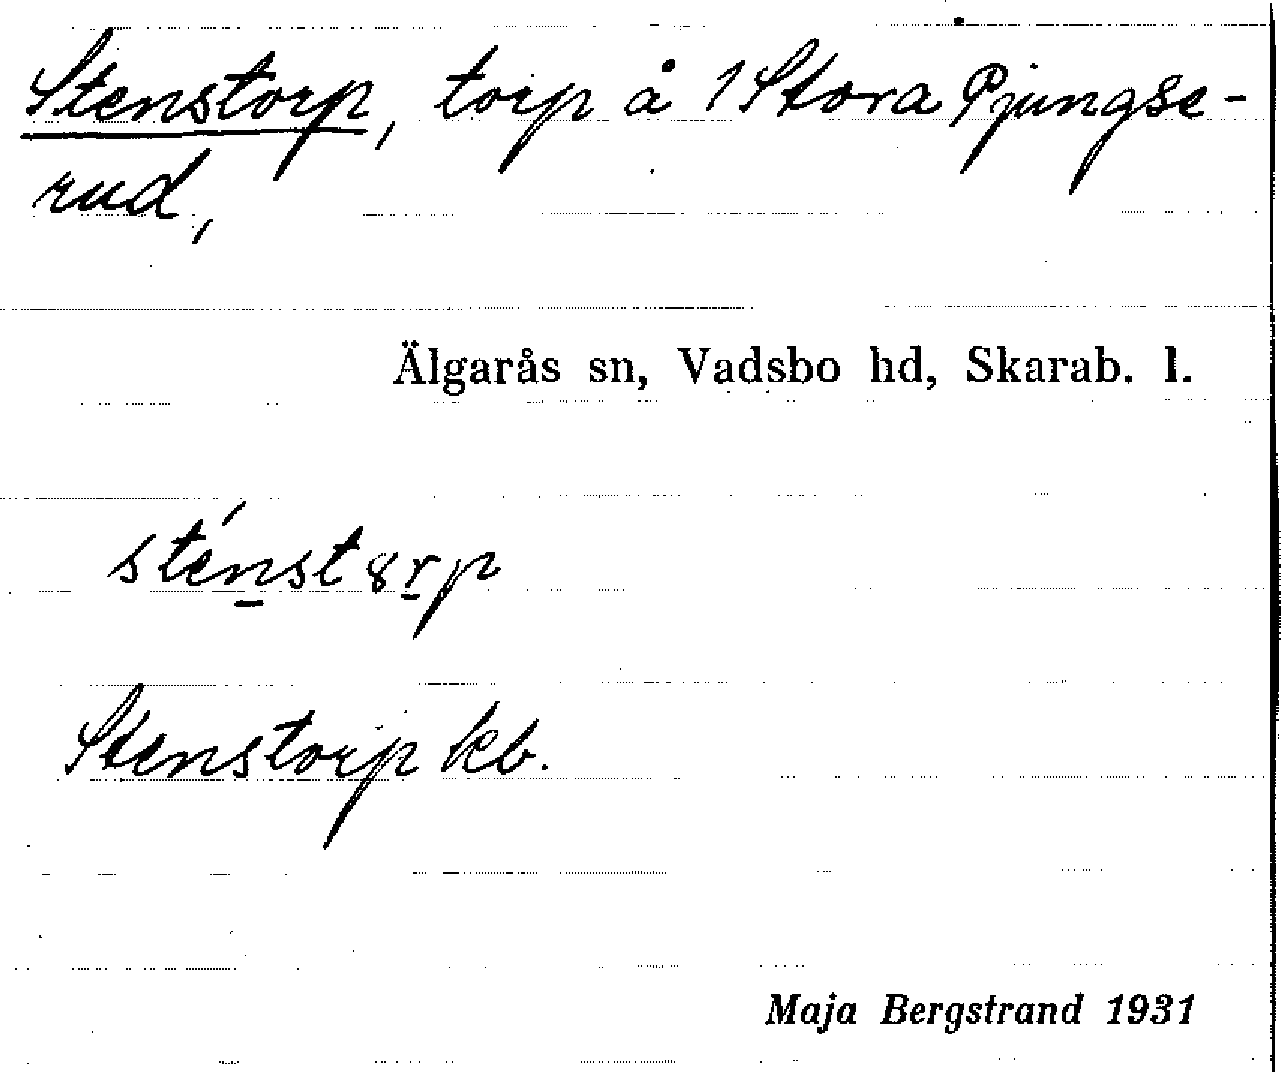 Stenstorp, torp å 1 Stora Pjungse-
rud,
Älgarås sn, Vadsbo hd, Skarab. l.
sténst8rp
Stenstorp kb.
Maja Bergstrand 1931